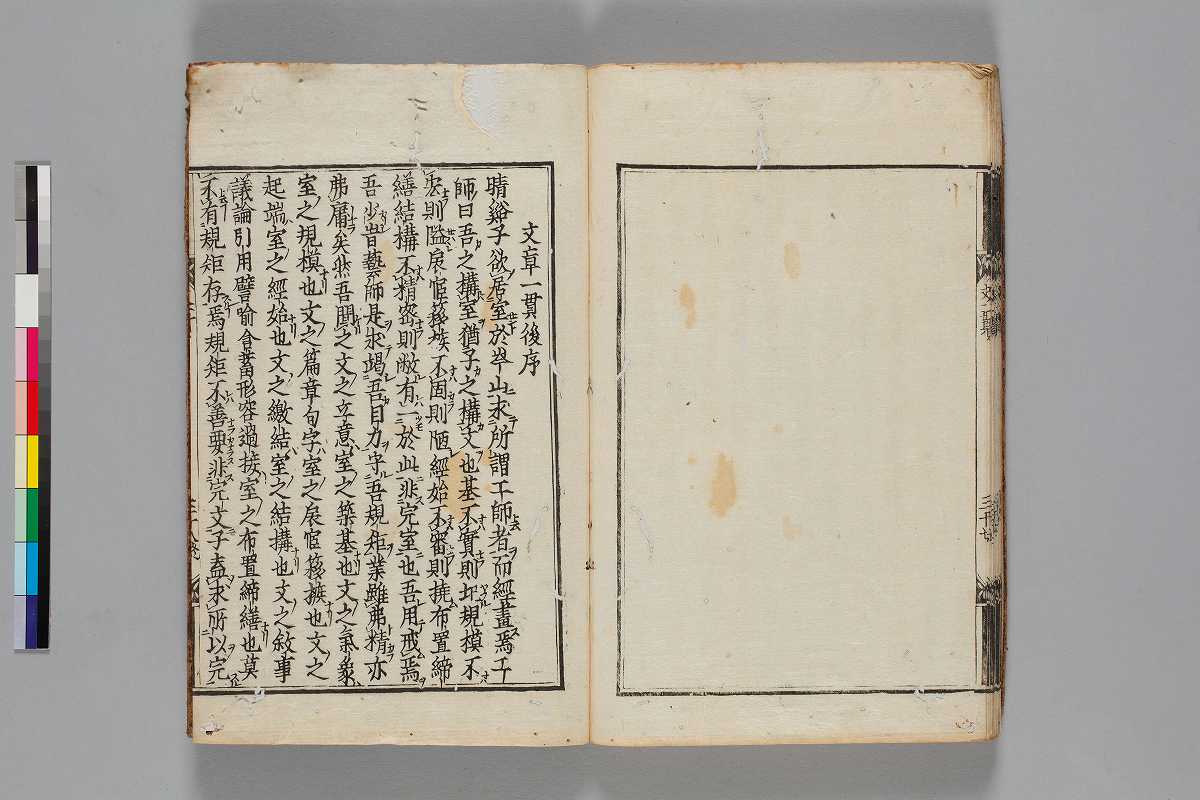 文章一貫後序
晴谿子欲居室於半山求所謂工師者而經畫焉工
師曰吾之構室猶子之構文也基不實則圯規模不
宏則隘扂宧簃㨞不固則陋經始不審則撓布置締
繕結構不精密則敝有一於此非完室也吾用戒焉
吾少嘗藝師是求竭吾目力守吾規矩業雖弗精亦
弗庸矣然吾聞之文之立意室之築基也文之氣象
室之規模也文之篇章句字室之扂宧簃㨞也文之
起端室之經始也文之繳結室之結搆也文之敘事
議論引用譬喻含蓄形容過接室之布置締繕也莫
不有規矩存焉規矩不善要非完文子盍求所以完
三十七